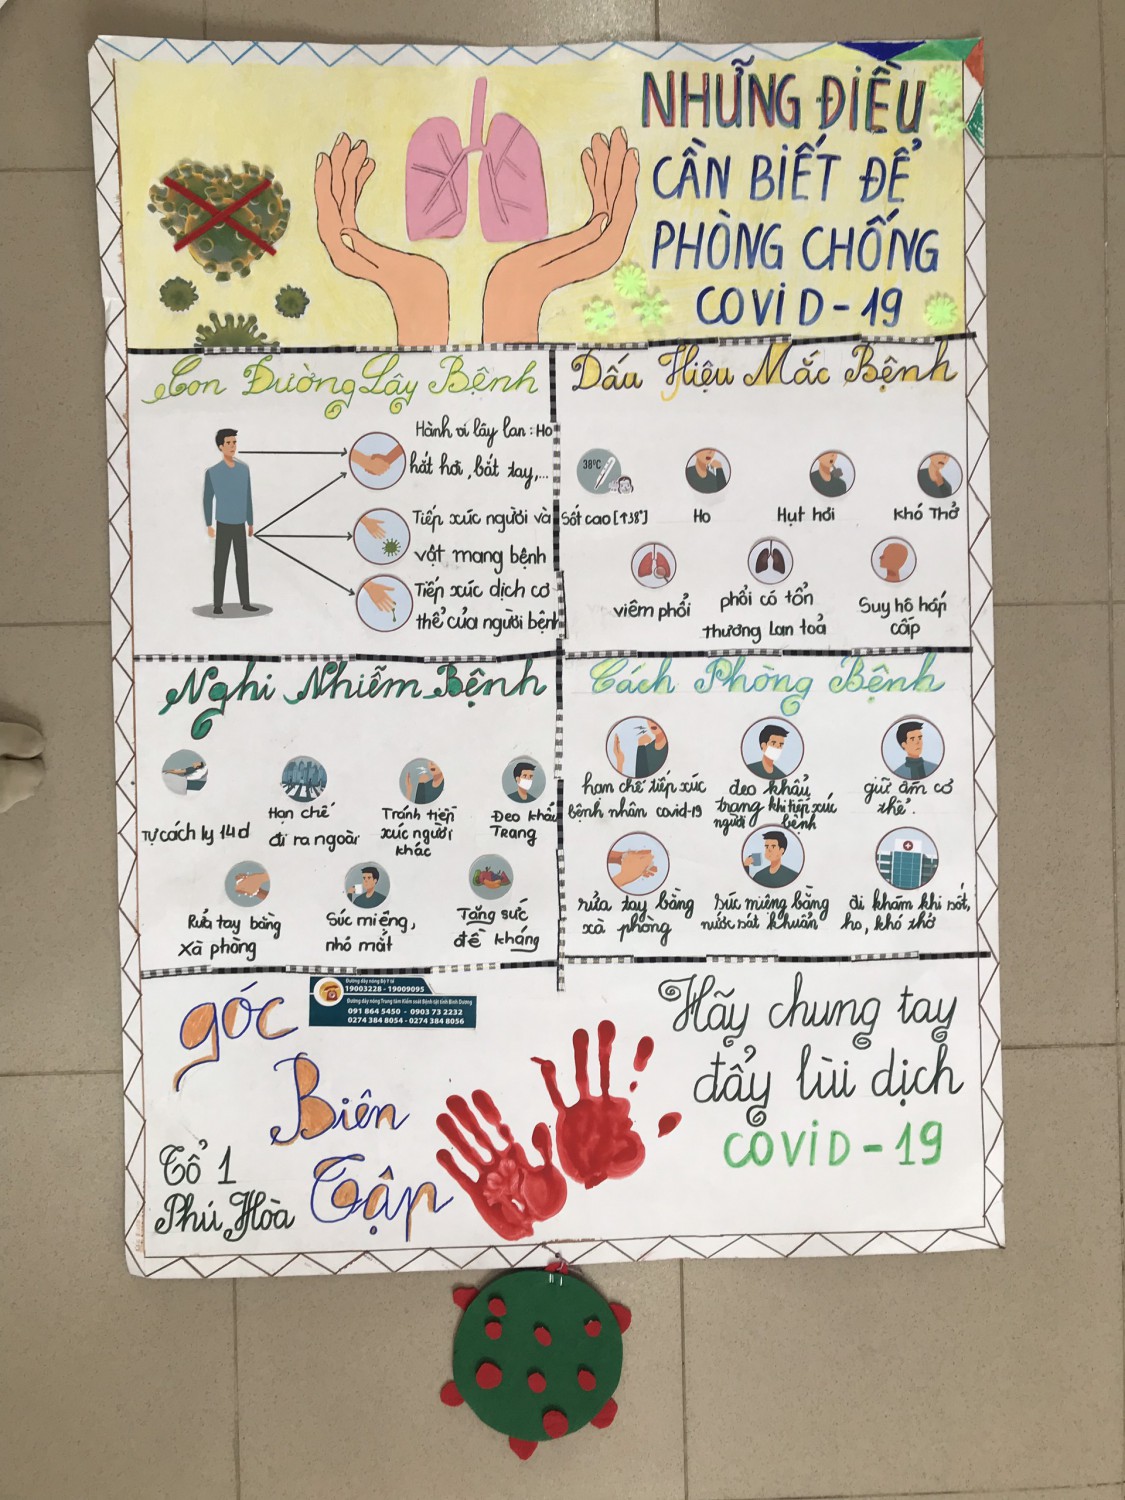 NHỮNG ĐIỀU
CẦN BIẾT ĐỂ
PHÒNG CHỐNG
COVID-19
Con Đường Lây Bệnh
Hành vi lây lan: Ho
hắt hơi, bắt tay,...
Tiếp xúc người và
vật mang bệnh
Tiếp xúc dịch cơ
thể của người bệnh
Dấu Hiệu Mắc Bệnh
38°C
Sốt cao [↑38°]
Ho
Hụt hơi
Khó Thở
viêm phổi
phổi có tổn
thương lan toả
Suy hô hấp
cấp
Nghi Nhiễm Bệnh
Tự cách ly 14d
Hạn chế
đi ra ngoài
Tránh tiếp
xúc người
khác
Đeo khẩu
Trang
Rửa tay bằng
Xà phòng
Súc miệng,
nhỏ mắt
Tăng sức
đề kháng
Cách Phòng Bệnh
hạn chế tiếp xúc
bệnh nhân covid-19
đeo khẩu
trang khi tiếp xúc
người bệnh
giữ ấm cơ
thể.
rửa tay bằng
xà phòng
súc miệng bằng
nước sát khuẩn
đi khám khi sốt,
ho, khó thở
góc
Biên
Tập
Đường dây nóng Bộ Y tế
19003228 - 19009095
Đường dây nóng Trung tâm Kiểm soát Bệnh tật tỉnh Bình Dương
091 864 5450 - 0903 73 2232
0274 384 8054 - 0274 384 8056
Tổ 1
Phú Hoà
Hãy chung tay
đẩy lùi dịch
COVID-19